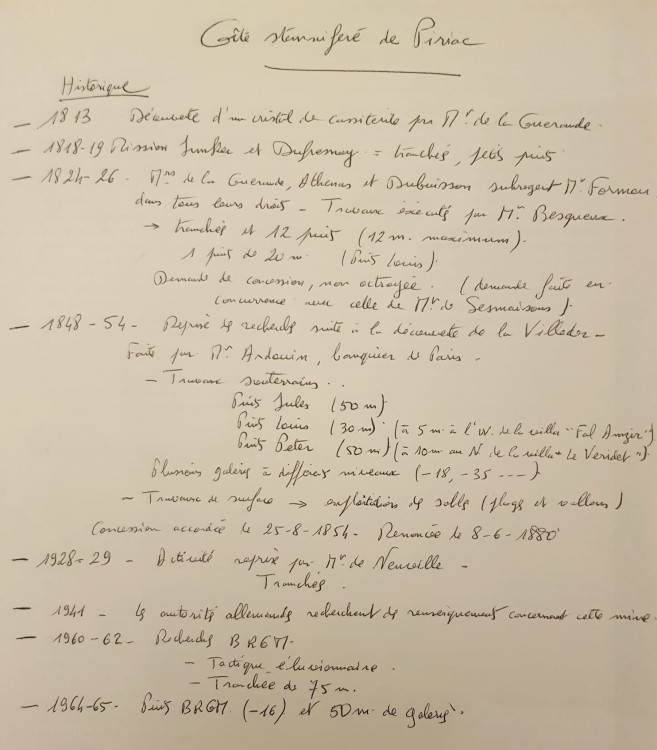 Gîte stannifère de Piriac
Historique
— 1813 Découverte d'un cristal de cassitérite par Mr de la Guerande.
— 1818-19 Mission Junker et Dufresnoy = tranchés, petits puits
— 1824-26 - Mrs de la Guerande, Athenas et Dubuisson subrogent Mr Forman
dans tous leurs droits - Travaux éxécutés par Mr Besqueux.
→ tranchés et 12 puits (12 m. maximum).
1 puits de 20 m. (Puits Louis).
Demande de concession, non octroyée. (demande faite en
concurrence avec celle de Mr de Sesmaisons).
— 1848-54 - Reprise des recherches suite à la découverte de la Villeder -
Faite par Mr Ardouin, banquier de Paris.
— Travaux souterrains . .
Puits Jules (50 m)
Puits Louis (30 m) (à 5 m à l'W. de la villa "Fal Amzer")
Puits Peter (50 m) (à 10 m au N de la villa "Le Veridet")
Plusieurs galeries à différents niveaux (-18, -35 ----)
— Travaux de surface → exploitation des sables (plages et vallons)
Concession accordée le 25-8-1854. Renoncée le 8-6-1880
— 1928-29 - Activité reprise par Mr de Neuville -
Tranchés.
— 1941 - les autorités allemands recherchent des renseignements concernant cette mine.
— 1960-62 - Recherches BRGM.
— Tactique éluvionnaire.
— Tranchée de 75 m.
— 1964-65 - Puits BRGM. (-16) et 50 m. de galeries.